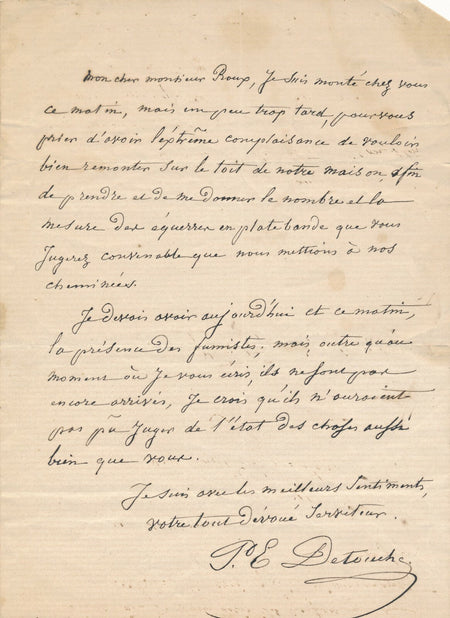 mon cher monsieur Roux, Je suis monté chez vous
ce matin, mais un peu trop tard, pour vous
prier d'avoir l'éxtrême complaisance de vouloir
bien remonter sur le toit de notre maison afin
de prendre et de me donner le nombre et la
mesure des équerres en plate bande que vous
Jugerez convenable que nous mettions à nos
cheminées.
Je devais avoir aujourd'hui et ce matin,
la présence des fumistes; mais outre qu'au
moment où Je vous écris, ils ne sont pas
encore arrivés, Je crois qu'ils n'auraient
pas pû Juger de l'état des choses aussi
bien que vous.
Je suis avec les meilleurs sentiments,
votre tout dévoué serviteur.
P. E Detouche